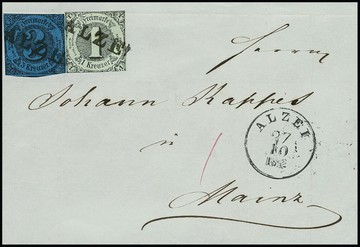 Freimarke
3
3 Kreuzer
Freimarke
1
1 Kreuzer
ALZEI
Herrn
Johann Kappes
in
Mainz
ALZEI
27
10